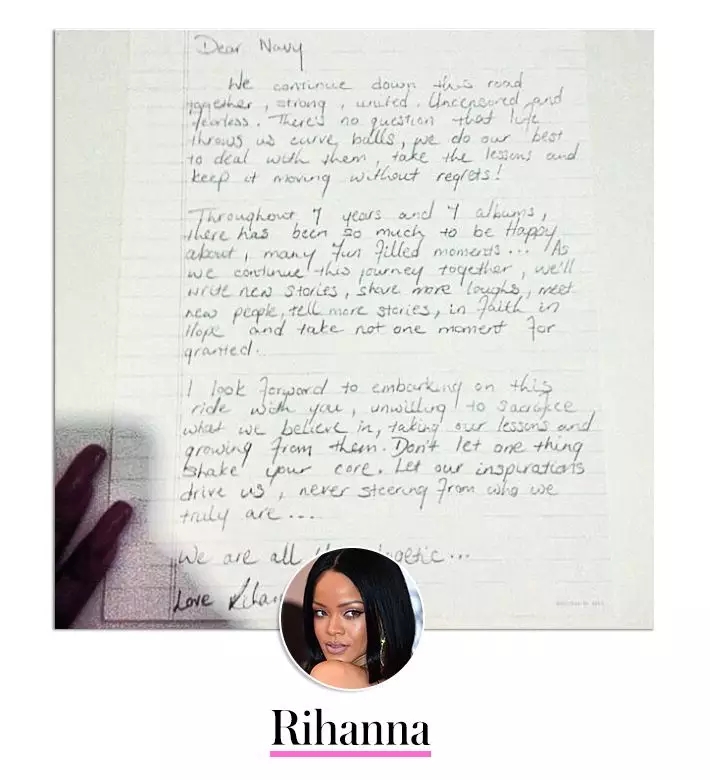 Dear Navy
We continue down this road
together, strong, united. Uncensored and
fearless. There's no question that life
throws us curve balls, we do our best
to deal with them, take the lessons and
keep it moving without regrets!
Throughout 7 years and 7 albums,
there has been so much to be Happy
about, many fun filled moments... As
we continue this journey together, we'll
write new stories, share more laughs, meet
new people, tell more stories, in faith in
Hope and take not one moment for
granted.
I look forward to embarking on this
ride with you, unwilling to sacrifice
what we believe in, taking our lessons and
growing from them. Don't let one thing
shake your core. Let our inspirations
drive us, never steering from who we
truly are....
We are all
Love
Rihanna